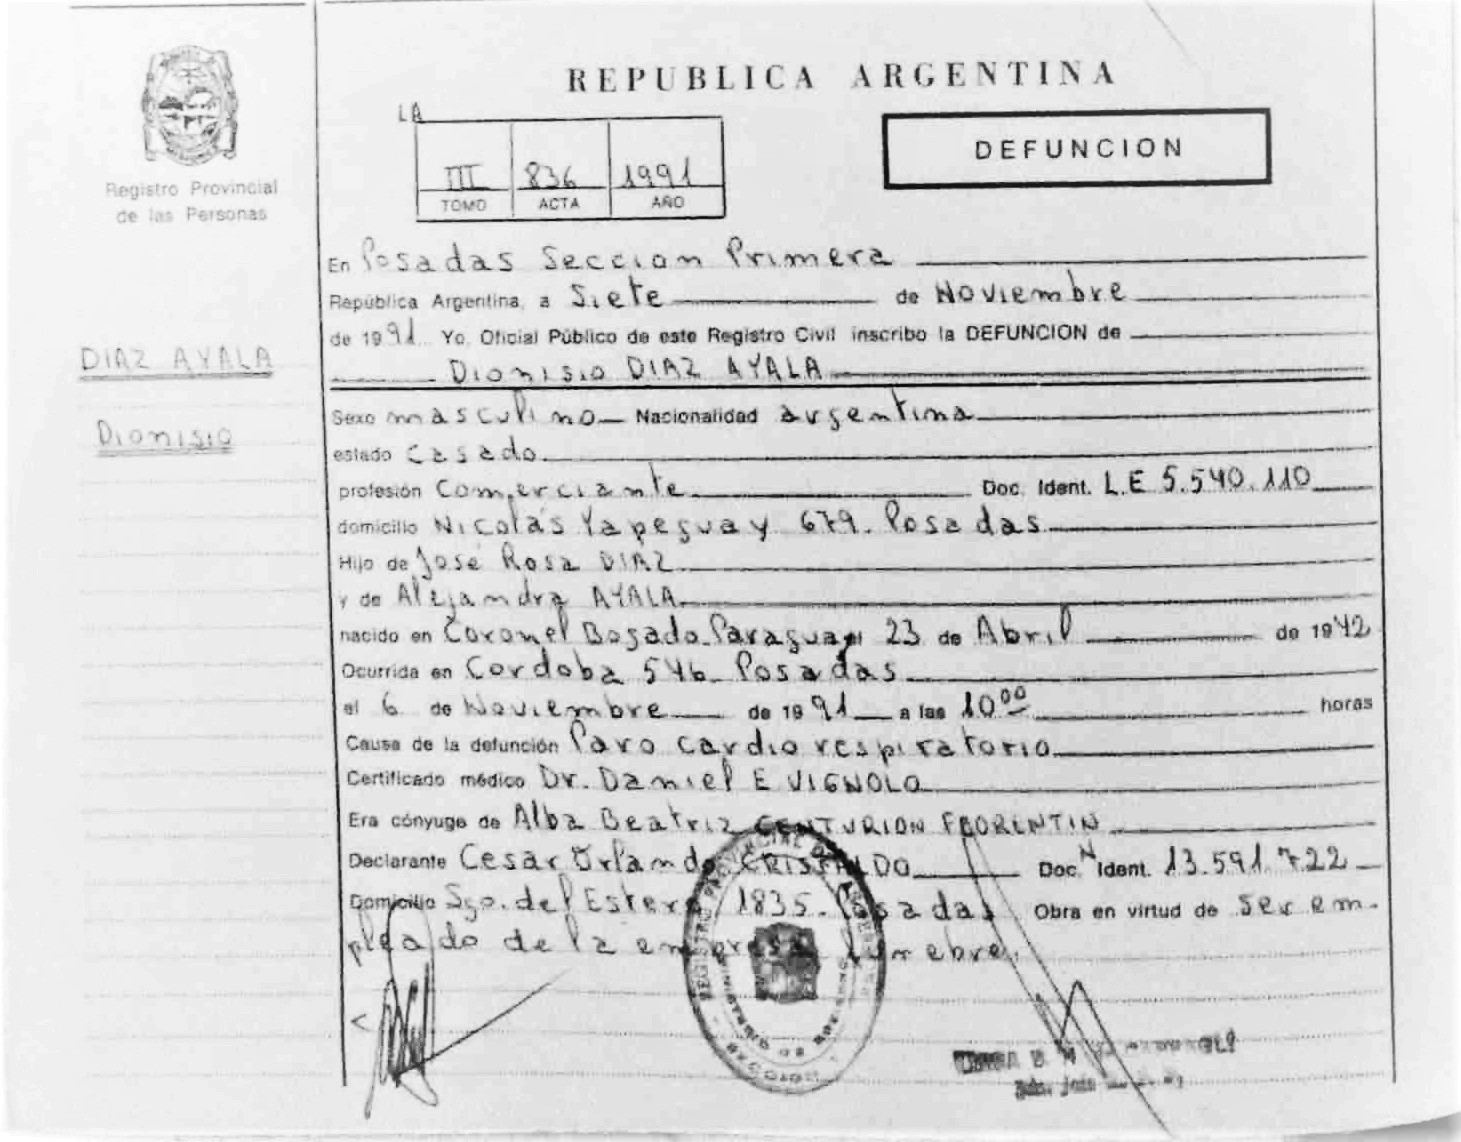 REPUBLICA ARGENTINA
LA
DEFUNCION
III 836 1991
TOMO ACTA AÑO
Registro Provincial
de las Personas
En Posadas Seccion Primera
República Argentina, a Siete de Noviembre
de 1991 Yo, Oficial Público de este Registro Civil inscribo la DEFUNCION de
DIAZ AYALA
Dionisio DIAZ AYALA
Sexo masculino Nacionalidad argentina
Dionisio
estado Casado
profesión Comerciante Doc. Ident. L.E 5.540.110
domicilio Nicolás Yapeguay 679. Posadas
Hijo de José Rosa DIAZ
y de Alejandra AYALA
nacido en Coronel Bogado. Paraguay el 23 de Abril de 1942
Ocurrida en Cordoba 546. Posadas
el 6 de Noviembre de 1991 a las 10⁰⁰ horas
Causa de la defunción Paro cardio respiratorio
Certificado médico Dr. Daniel E VIGNOLO
Era cónyuge de Alba Beatriz CENTURION FLORENTIN
Declarante Cesar Orlando CRISTALDO Doc. N Ident. 13.591.722
Domicilio Sgo. del Estero 1835. Posadas Obra en virtud de ser em-
pleado de la empresa funebre.
REGISTRO PROVINCIAL DE
MINISTERIO DE GOBIERNO
SECCION